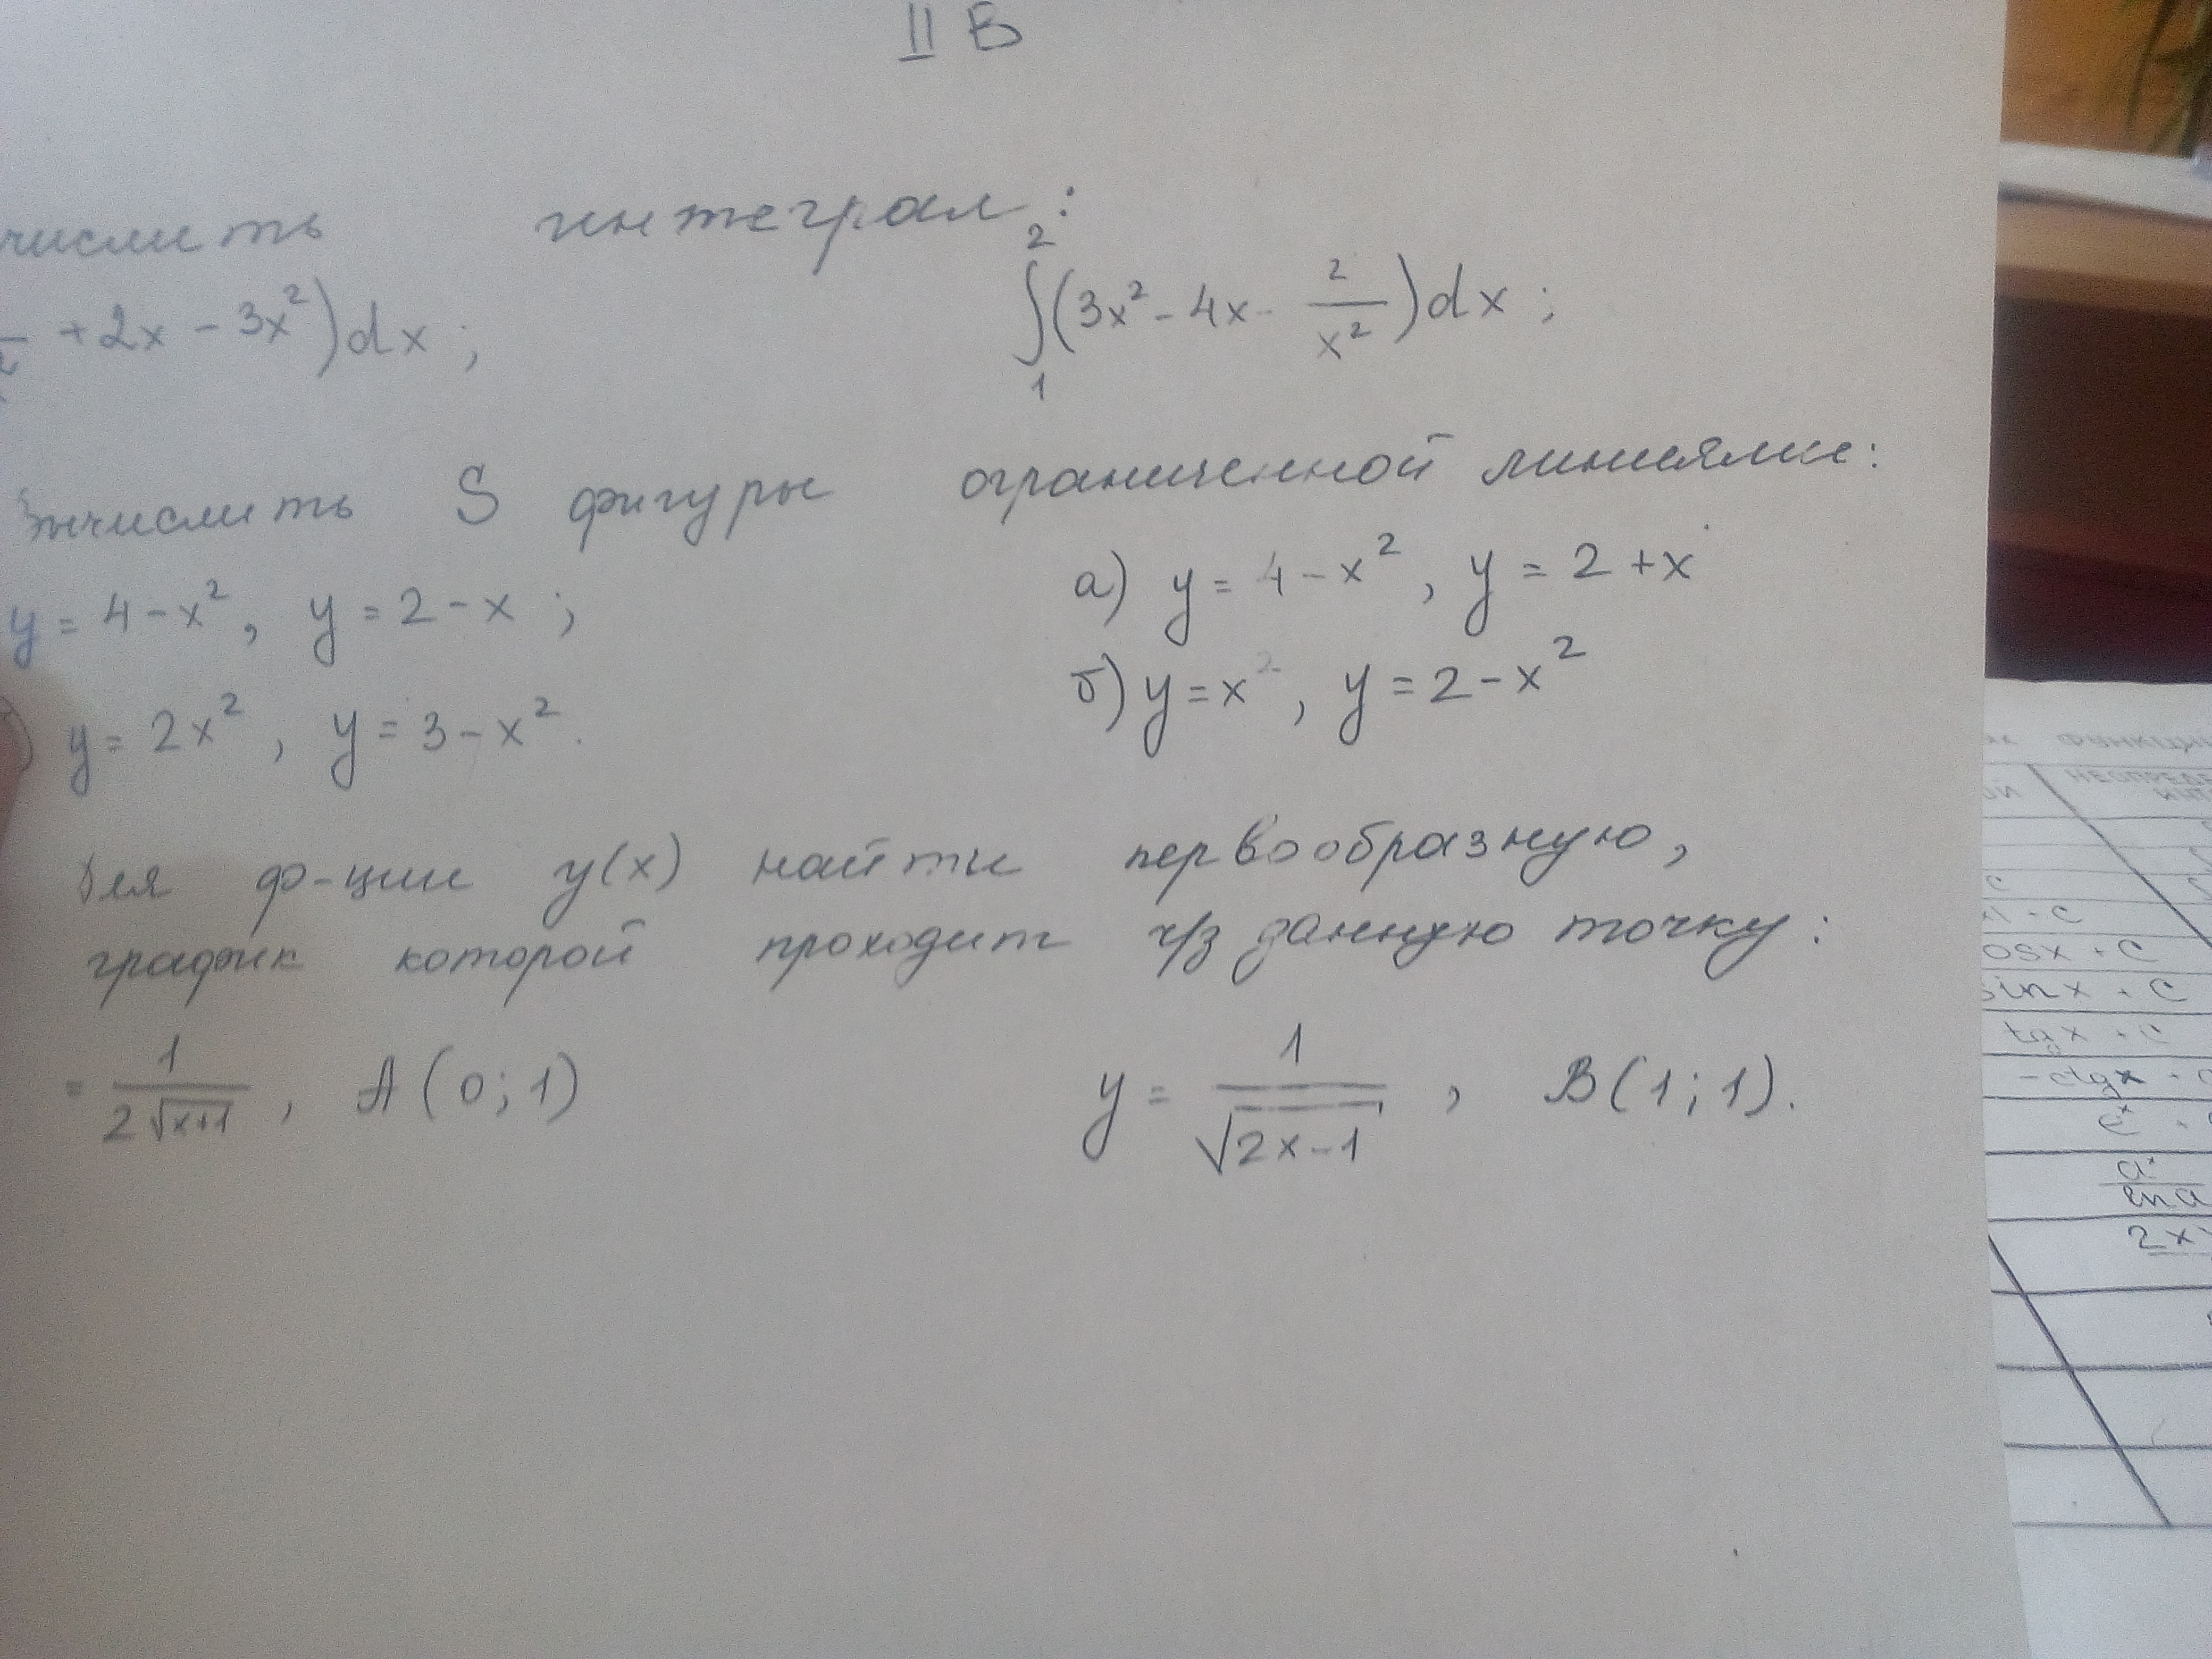 II В
числить интеграл:
+2x - 3x²)dx; ∫₁²(3x² - 4x - 2/x²)dx;
Вычислить S фигуры ограниченной линиями:
y = 4 - x², y = 2 - x; а) y = 4 - x², y = 2 + x
) y = 2x², y = 3 - x². б) y = x², y = 2 - x²
Для ф-ции y(x) найти первообразную,
график которой проходит ч/з данную точку:
= 1/(2√(x+1)), A(0; 1) y = 1/√(2x-1), B(1; 1).
функци
ой НЕОПРЕДЕ
ИНТ
c
+ c
osx + C
sinx + C
tgx + C
-ctgx + C
eˣ +
aˣ/ln a
2x